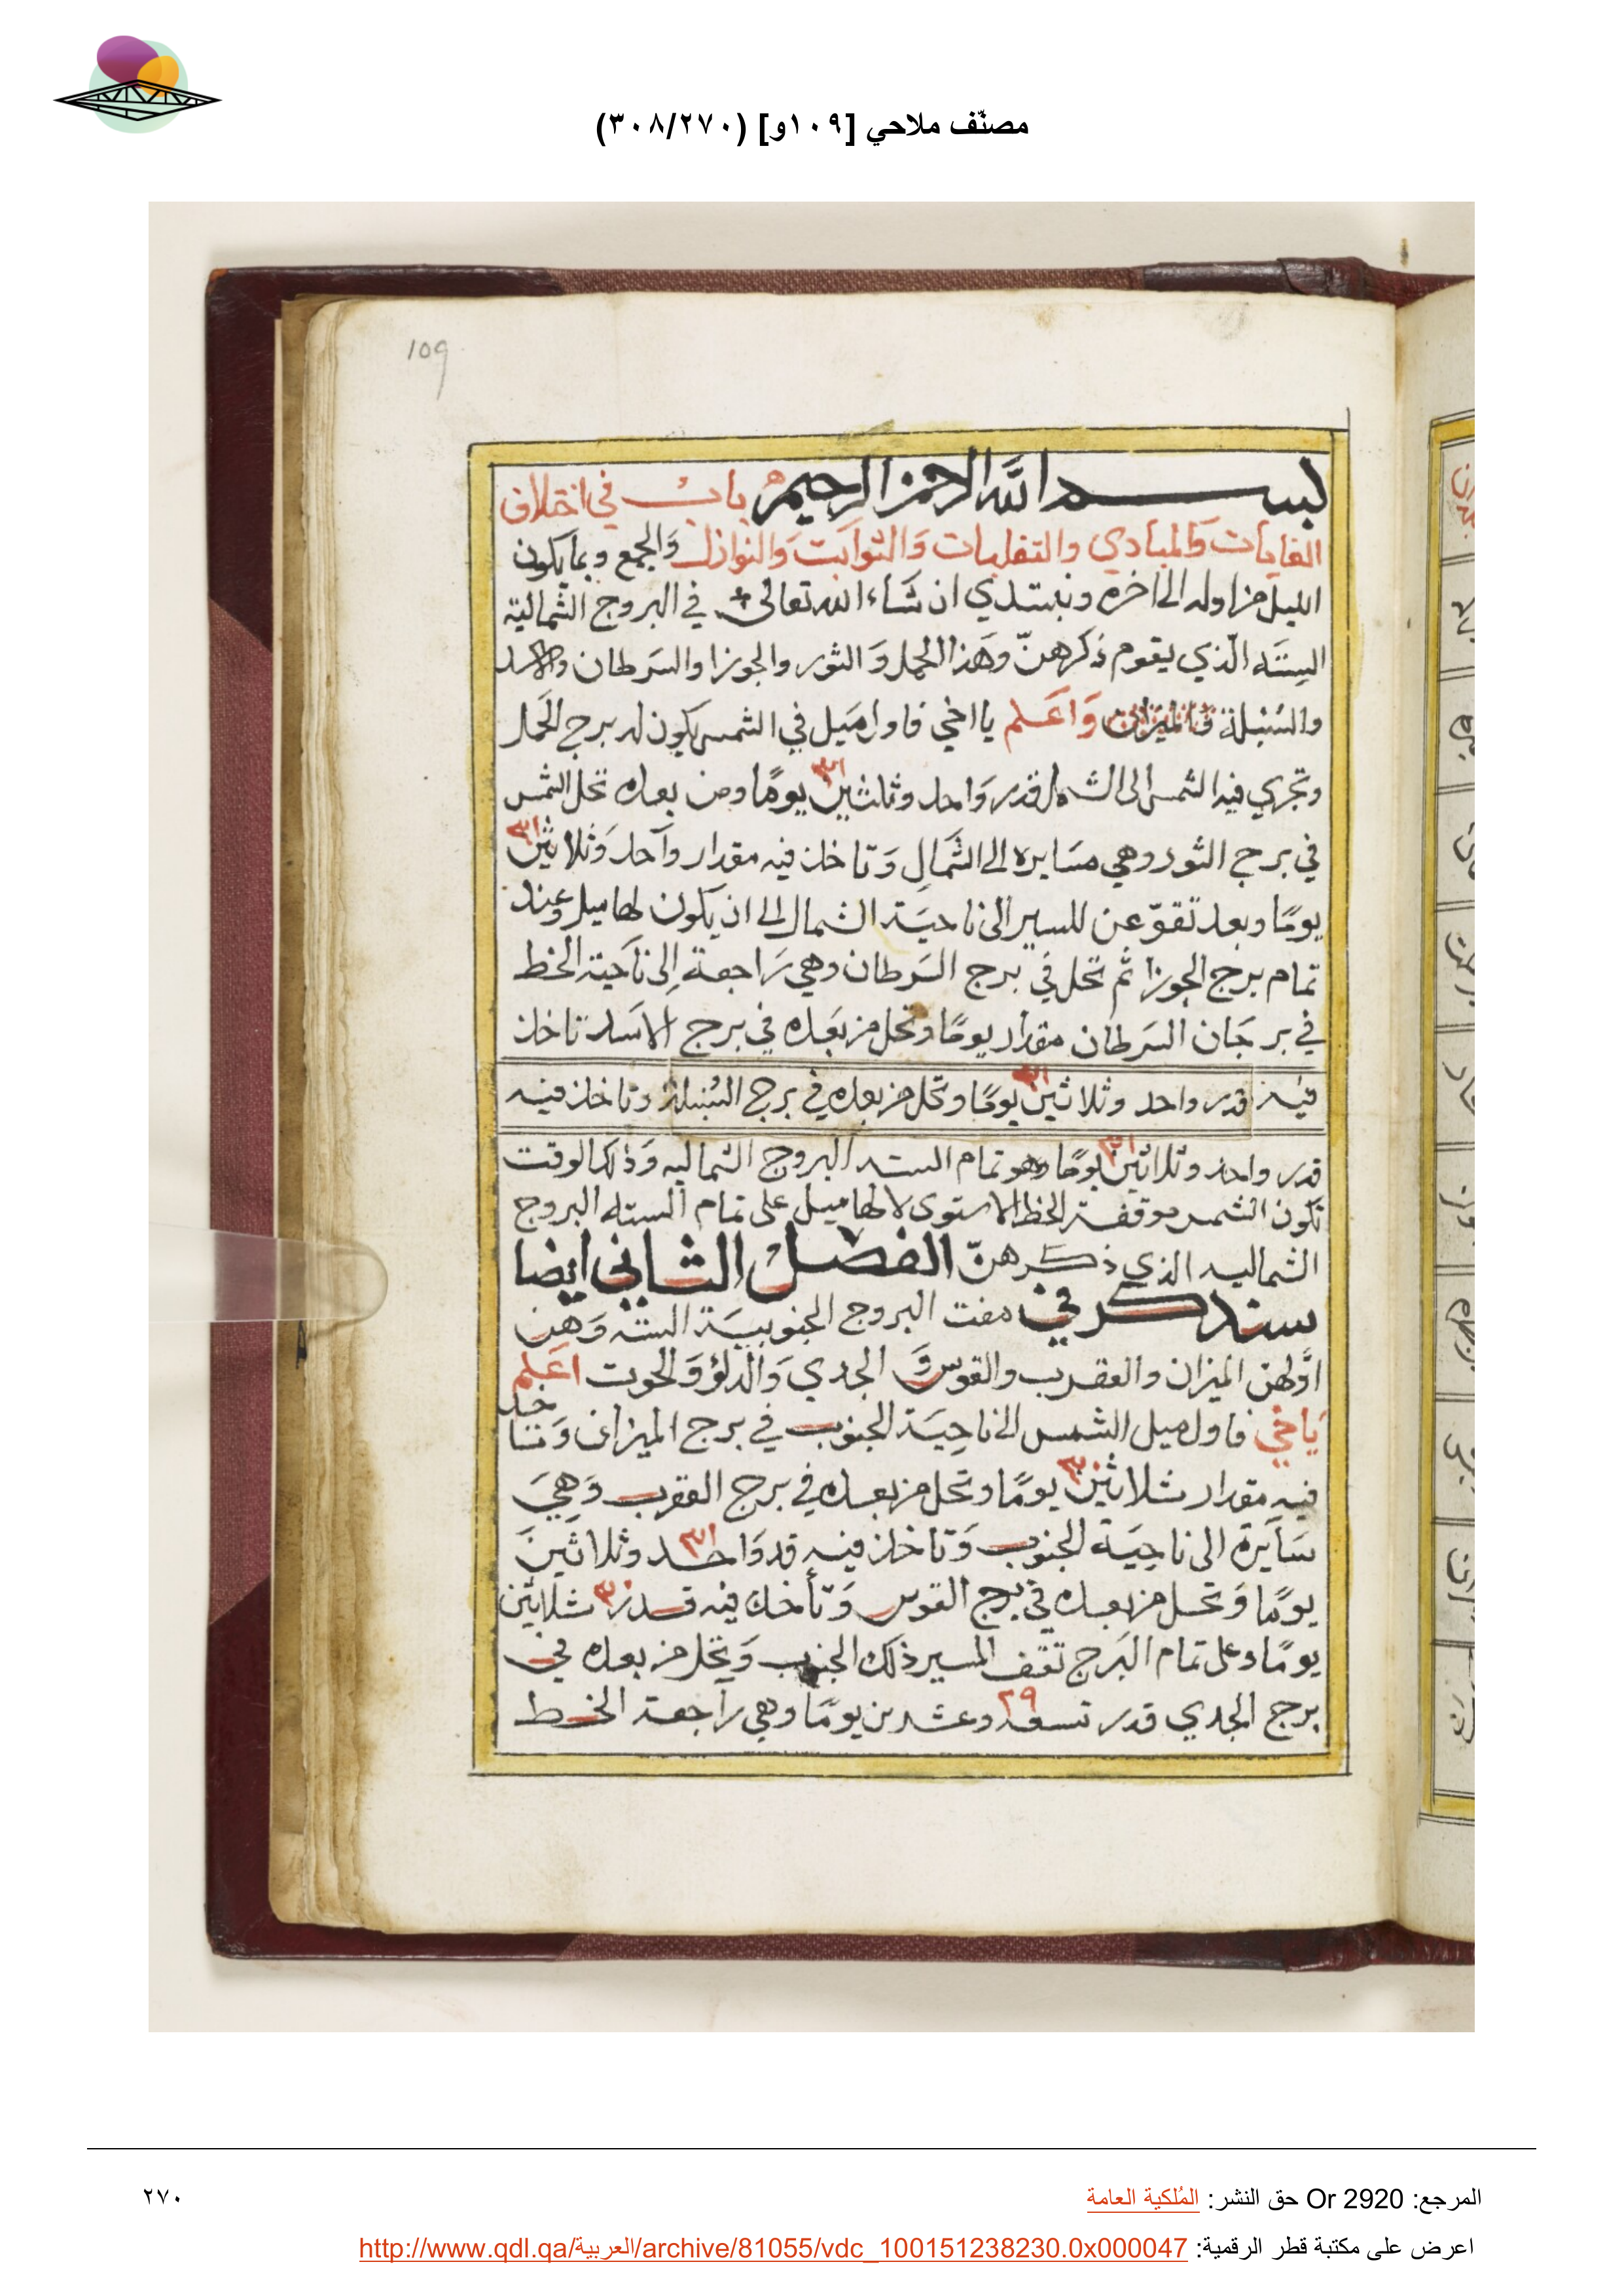 مصنّف ملاحي [١٠٩و] (٣٠٨/٢٧٠)
109
بسم الله الرحمن الرحيم باب في اختلاف
الغايات والمبادي والتقلبات والثوابت والنوازل والجمع وبما يكون
الليل من اوله الى اخره ونبتدي ان شاء الله تعالى في البروج الشمالية
الستة الذي يقوم ذكرهنّ وهذا الحمل وَالثور والجوزا والسرطان والاسد
والسُنبلة وَاعَلم يا اخي فاول مَيل في الشمس يكون له برج الحَمل
وتجري فيه الشمس الى الشمال قدر وَاحد وثلثين ٣١ يومًا ومن بعده تحل الشمس
في برج الثور وهي مسَايره الى الشمَالِ وَتاخذ فيه مقدار وآحد وَثلاثين ٣١
يومًا وبعد تقوّ عن للسير الى ناحيَة الشمال الى ان يكون لها ميل وعند
تمام برج الجوزا ثم تحل في برج السَرطان وهي رَاجعة إلى ناحية الخط
في برجَان السَرطان مقدار يومًا وتحل من بَعده في برج الاسَد تاخذ
فيه قدر واحد وثلاثين ٣١ يومًا وتحل من بعده في برج السُنبلة وتاخذ فيه
قدر واحد وثلاثين ٣١ يومًا وهو تمام الستة البروج الشماليه وَذلك الوقت
تكون الشمس موقفة الخط الاستوى لا لها ميل على تمام الستة البروج
الشماليه الذي ذكرهنّ الفصل الثاني ايضا
سنذكر في صفت البروج الجنوبيَة الستة وَهن
اوَّلهن الميزان والعقرب والقوس وَالجدي وَالدلوْ وَلحوت اعَلم
يَا خي فاول ميل الشمس الى ناحِيَة الجنوب في برج الميزان وَتتاخد
فيه مقدار ثلاثين ٣٠ يومًا وتحل من بعده في برج العقرب وَهِيَ
سَايرة الى ناحِيَة الجنوب وَتاخذ فيه قد وَاحد ٣١ وثلاثينَ
يومًا وَتحل من بعده في برج القوس وَتأخذ فيه قدر ٣٠ ثلاثين
يومًا وعلى تمام البَرج تقف المسير ذلك الجنوب وَتحل من بعده في
برج الجدي قدر تسعه ٢٩ وعشرين يومًا وهي رَاجعة الخط
المرجع: Or 2920 حق النشر: المُلكية العامة
٢٧٠
اعرض على مكتبة قطر الرقمية: http://www.qdl.qa/العربية/archive/81055/vdc_100151238230.0x000047